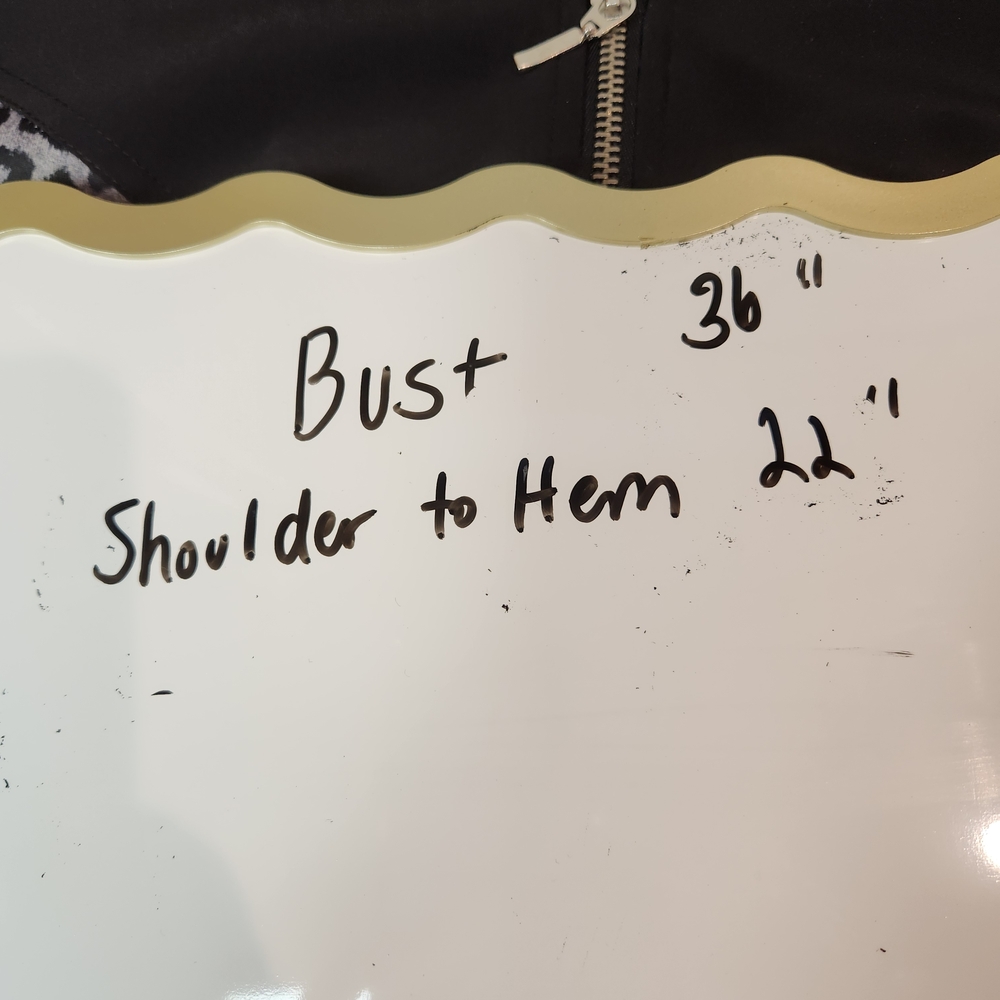 Bust 36"
Shoulder to Hem 22"